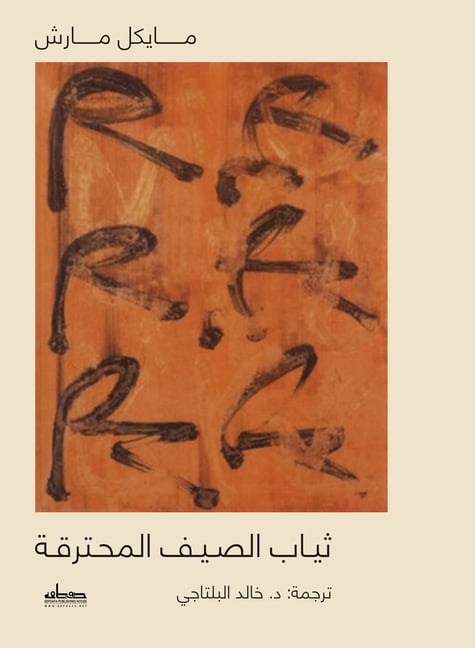 مايكل مارش
ثياب الصيف المحترقة
ترجمة: د. خالد البلتاجي
صفصافة
SEFSAFA PUBLISHING HOUSE
WWW.SEFSAFA.NET